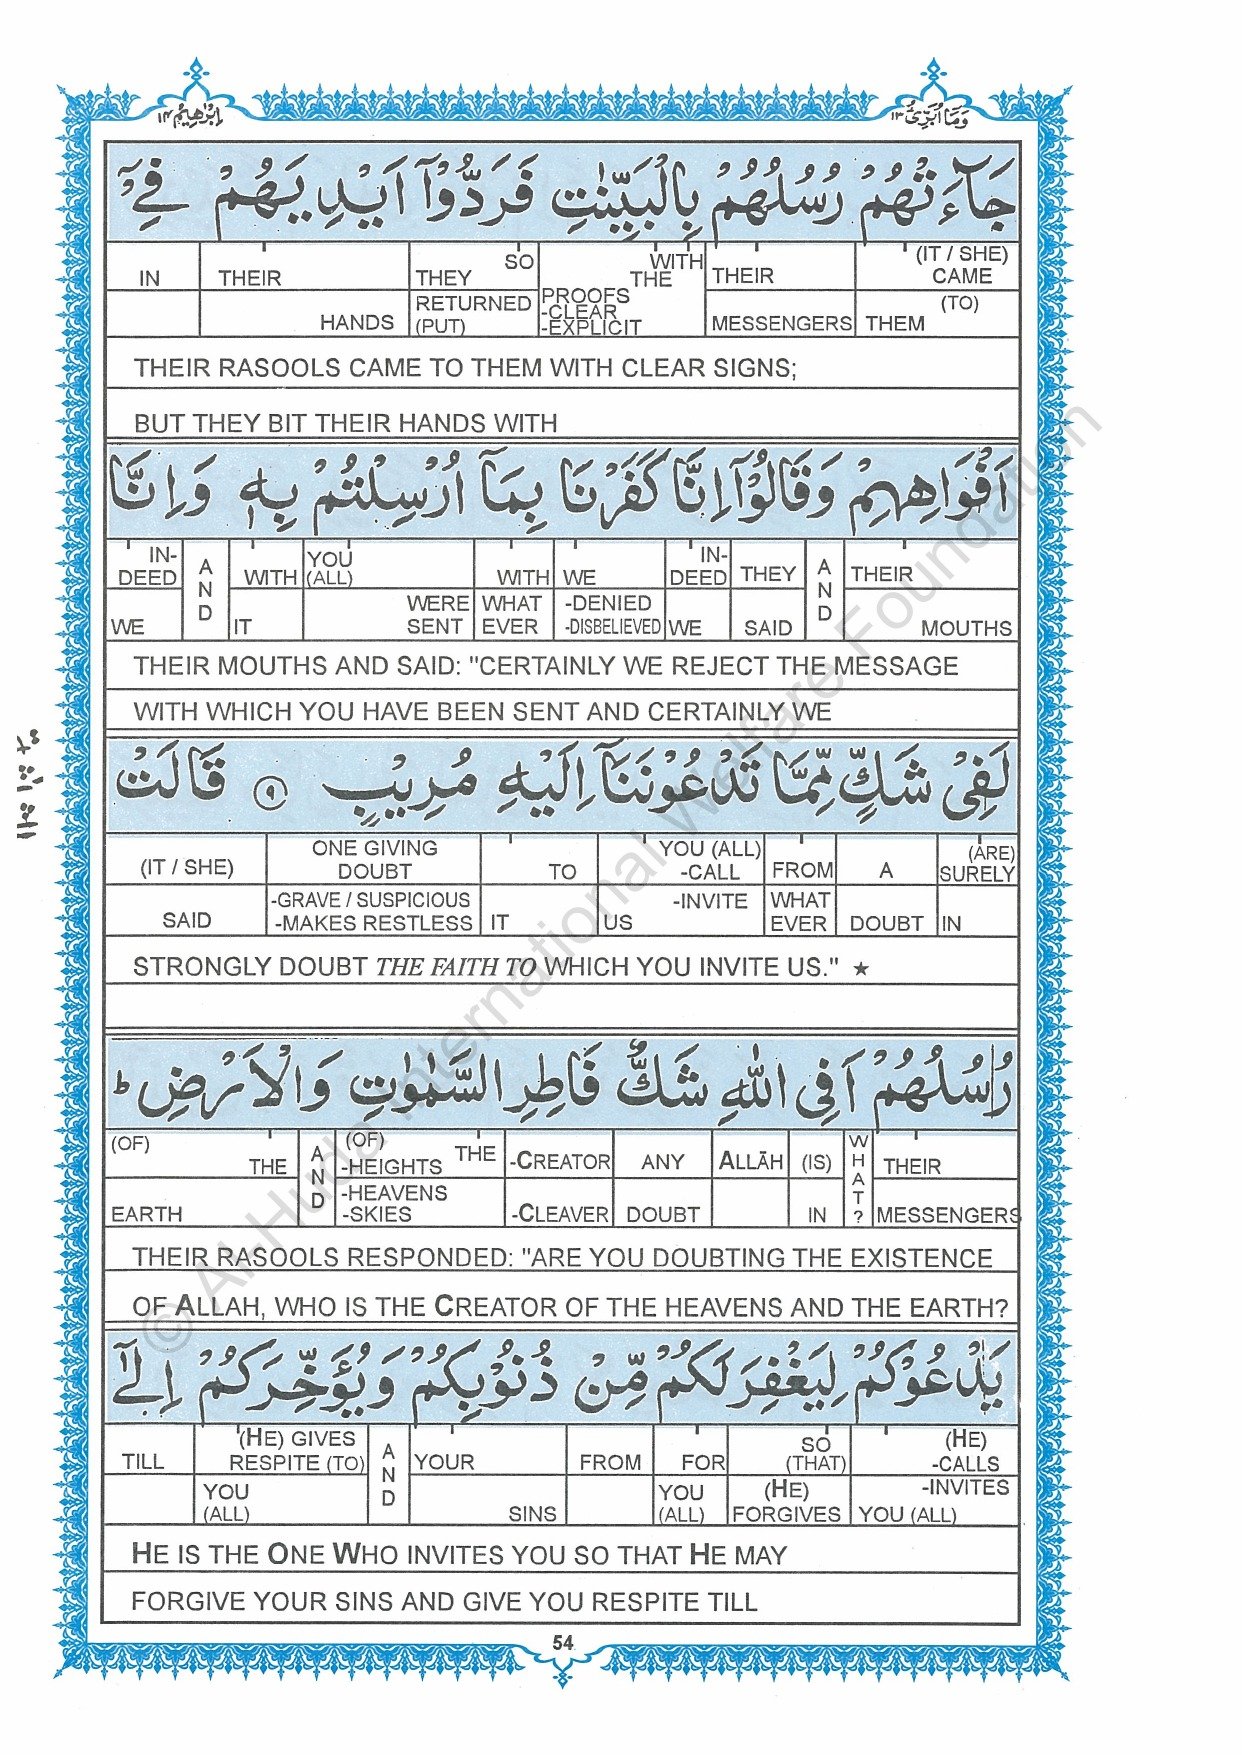 وَمَآ اُبَرِّئُ ١٣
اِبْرٰهِيْمُ ١٤
جَآءَتْهُمْ رُسُلُهُمْ بِالْبَيِّنٰتِ فَرَدُّوْٓا اَيْدِيَهُمْ فِيْٓ
IN THEIR SO THEY WITH THE THEIR (IT / SHE) CAME
HANDS RETURNED (PUT) PROOFS -CLEAR -EXPLICIT MESSENGERS (TO) THEM
THEIR RASOOLS CAME TO THEM WITH CLEAR SIGNS;
BUT THEY BIT THEIR HANDS WITH
اَفْوَاهِهِمْ وَقَالُوْٓا اِنَّا كَفَرْنَا بِمَآ اُرْسِلْتُمْ بِهٖ وَاِنَّا
IN-DEED AND WITH YOU (ALL) WITH WE IN-DEED THEY AND THEIR
WE IT WERE SENT WHAT EVER -DENIED -DISBELIEVED WE SAID MOUTHS
THEIR MOUTHS AND SAID: "CERTAINLY WE REJECT THE MESSAGE
WITH WHICH YOU HAVE BEEN SENT AND CERTAINLY WE
لَفِيْ شَكٍّ مِّمَّا تَدْعُوْنَنَآ اِلَيْهِ مُرِيْبٍ ٩ قَالَتْ
(IT / SHE) ONE GIVING DOUBT TO YOU (ALL) -CALL FROM A (ARE) SURELY
SAID -GRAVE / SUSPICIOUS -MAKES RESTLESS IT US -INVITE WHAT EVER DOUBT IN
STRONGLY DOUBT THE FAITH TO WHICH YOU INVITE US." ★
رُسُلُهُمْ اَفِي اللّٰهِ شَكٌّ فَاطِرِ السَّمٰوٰتِ وَالْاَرْضِ ط
(OF) THE AND (OF) -HEIGHTS THE -CREATOR ANY ALLĀH (IS) WHAT? THEIR
EARTH -HEAVENS -SKIES -CLEAVER DOUBT IN MESSENGERS
THEIR RASOOLS RESPONDED: "ARE YOU DOUBTING THE EXISTENCE
OF ALLAH, WHO IS THE CREATOR OF THE HEAVENS AND THE EARTH?
يَدْعُوْكُمْ لِيَغْفِرَ لَكُمْ مِّنْ ذُنُوْبِكُمْ وَيُؤَخِّرَكُمْ اِلٰٓى
TILL (HE) GIVES RESPITE (TO) AND YOUR FROM FOR SO (THAT) (HE) -CALLS
YOU (ALL) SINS YOU (ALL) (HE) FORGIVES -INVITES YOU (ALL)
HE IS THE ONE WHO INVITES YOU SO THAT HE MAY
FORGIVE YOUR SINS AND GIVE YOU RESPITE TILL
54
© Al-Huda International Welfare Foundation